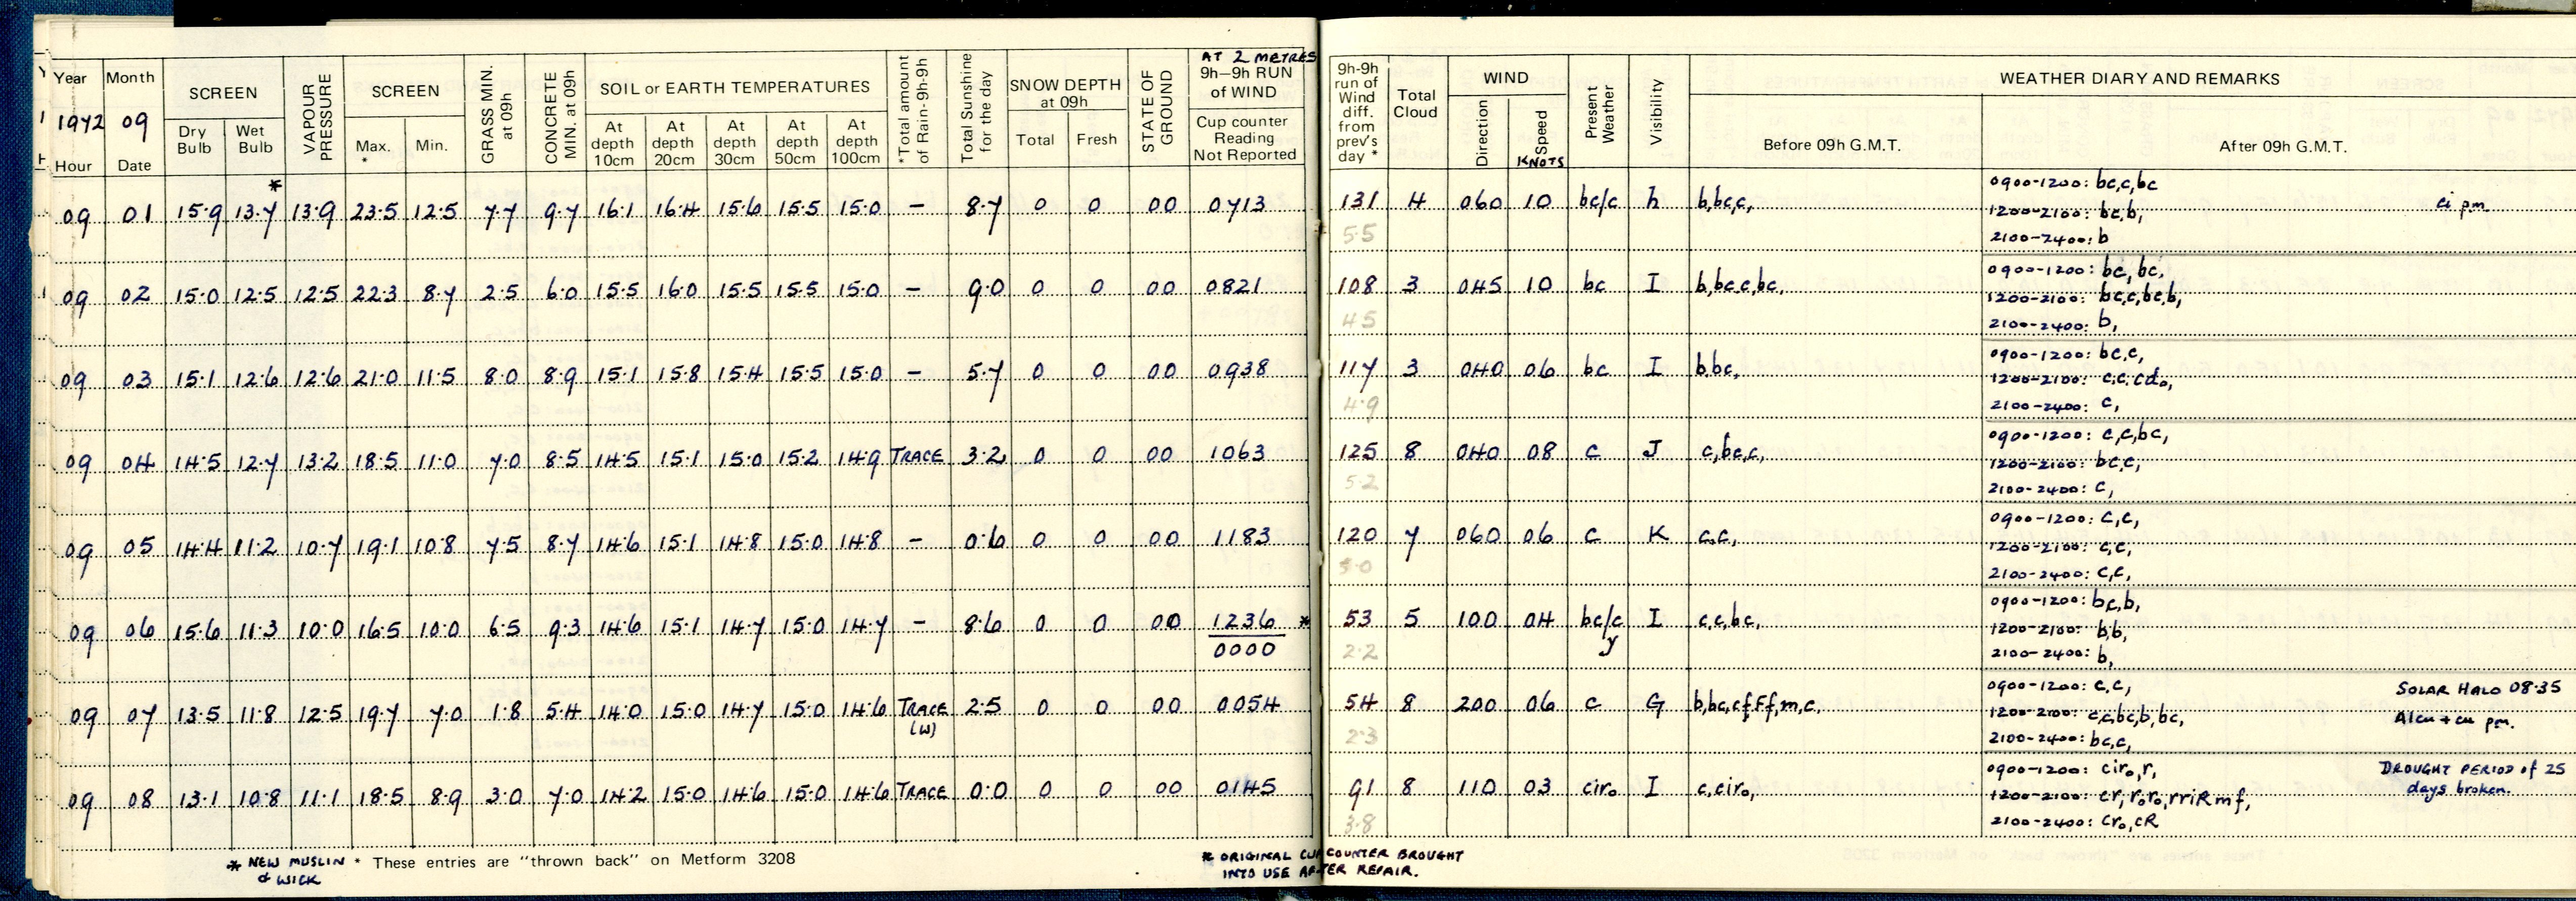 AT 2 METRES
Year Month SCREEN VAPOUR PRESSURE SCREEN GRASS MIN. at 09h CONCRETE MIN. at 09h SOIL or EARTH TEMPERATURES *Total amount of Rain-9h-9h Total Sunshine for the day SNOW DEPTH at 09h STATE OF GROUND 9h–9h RUN of WIND 9h-9h run of Wind diff. from prev's day * Total Cloud WIND Present Weather Visibility WEATHER DIARY AND REMARKS
1972 09
Hour Date Dry Bulb Wet Bulb Max. * Min. At depth 10cm At depth 20cm At depth 30cm At depth 50cm At depth 100cm Total Fresh Cup counter Reading Not Reported Direction Speed KNOTS Before 09h G.M.T. After 09h G.M.T.
*
09 01 15·9 13·7 13·9 23·5 12·5 7·7 9·7 16·1 16·4 15·6 15·5 15·0 – 8·7 0 0 00 0713 131 4 060 10 bc/c h b,bc,c, 0900-1200: bc,c,bc
5·5 1200-2100: bc,b, ci pm.
2100-2400: b
09 02 15·0 12·5 12·5 22·3 8·7 2·5 6·0 15·5 16·0 15·5 15·5 15·0 – 9·0 0 0 00 0821 108 3 045 10 bc I b,bc,c,bc, 0900-1200: bc, bc,
4·5 1200-2100: bc,c,bc,b,
2100-2400: b,
09 03 15·1 12·6 12·6 21·0 11·5 8·0 8·9 15·1 15·8 15·4 15·5 15·0 – 5·7 0 0 00 0938 117 3 040 06 bc I b,bc, 0900-1200: bc,c,
4·9 1200-2100: c,c,cd₀,
2100-2400: c,
09 04 14·5 12·7 13·2 18·5 11·0 7·0 8·5 14·5 15·1 15·0 15·2 14·9 TRACE 3·2 0 0 00 1063 125 8 040 08 c J c,bc,c, 0900-1200: c,c,bc,
5·2 1200-2100: bc,c,
2100-2400: c,
09 05 14·4 11·2 10·7 19·1 10·8 7·5 8·7 14·6 15·1 14·8 15·0 14·8 – 0·6 0 0 00 1183 120 7 060 06 c K c,c, 0900-1200: c,c,
5·0 1200-2100: c,c,
2100-2400: c,c,
09 06 15·6 11·3 10·0 16·5 10·0 6·5 9·3 14·6 15·1 14·7 15·0 14·7 – 8·6 0 0 00 1236 * 53 5 100 04 bc/c y I c,c,bc, 0900-1200: bc,b,
0000 2·2 1200-2100: b,b,
2100-2400: b,
09 07 13·5 11·8 12·5 19·7 7·0 1·8 5·4 14·0 15·0 14·7 15·0 14·6 TRACE (W) 2·5 0 0 00 0054 54 8 200 06 c G b,bc,cf,Ff,m,c, 0900-1200: c,c, SOLAR HALO 08·35
2·3 1200-2100: c,c,bc,b,bc, Alcu + cu pm.
2100-2400: bc,c,
09 08 13·1 10·8 11·1 18·5 8·9 3·0 7·0 14·2 15·0 14·6 15·0 14·6 TRACE 0·0 0 0 00 0145 91 8 110 03 cir₀ I c,cir₀, 0900-1200: cir₀,r, DROUGHT PERIOD of 25
3·8 1200-2100: cr,r₀r₀,rriRmf, days broken.
2100-2400: cr₀,cR
* NEW MUSLIN & WICK * These entries are "thrown back" on Metform 3208
* ORIGINAL CUP COUNTER BROUGHT
INTO USE AFTER REPAIR.